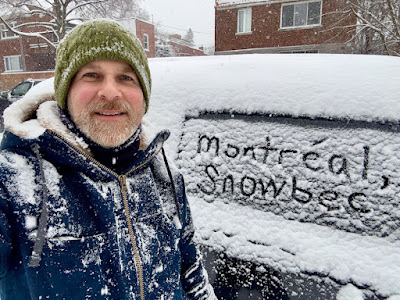 montréal,
Snowbec